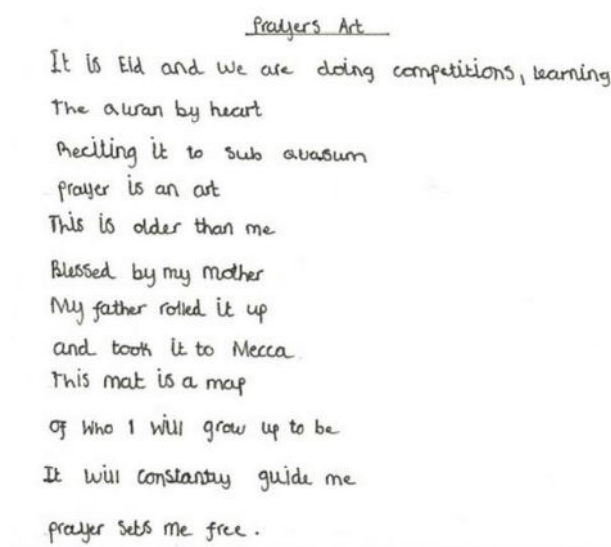 Prayers Art
It is Eid and we are doing competitions, learning
The Quran by heart
Reciting it to sub quasum
Prayer is an art
This is older than me
Blessed by my mother
My father rolled it up
and took it to Mecca
This mat is a map
of who I will grow up to be
It will constantly guide me
prayer sets me free.